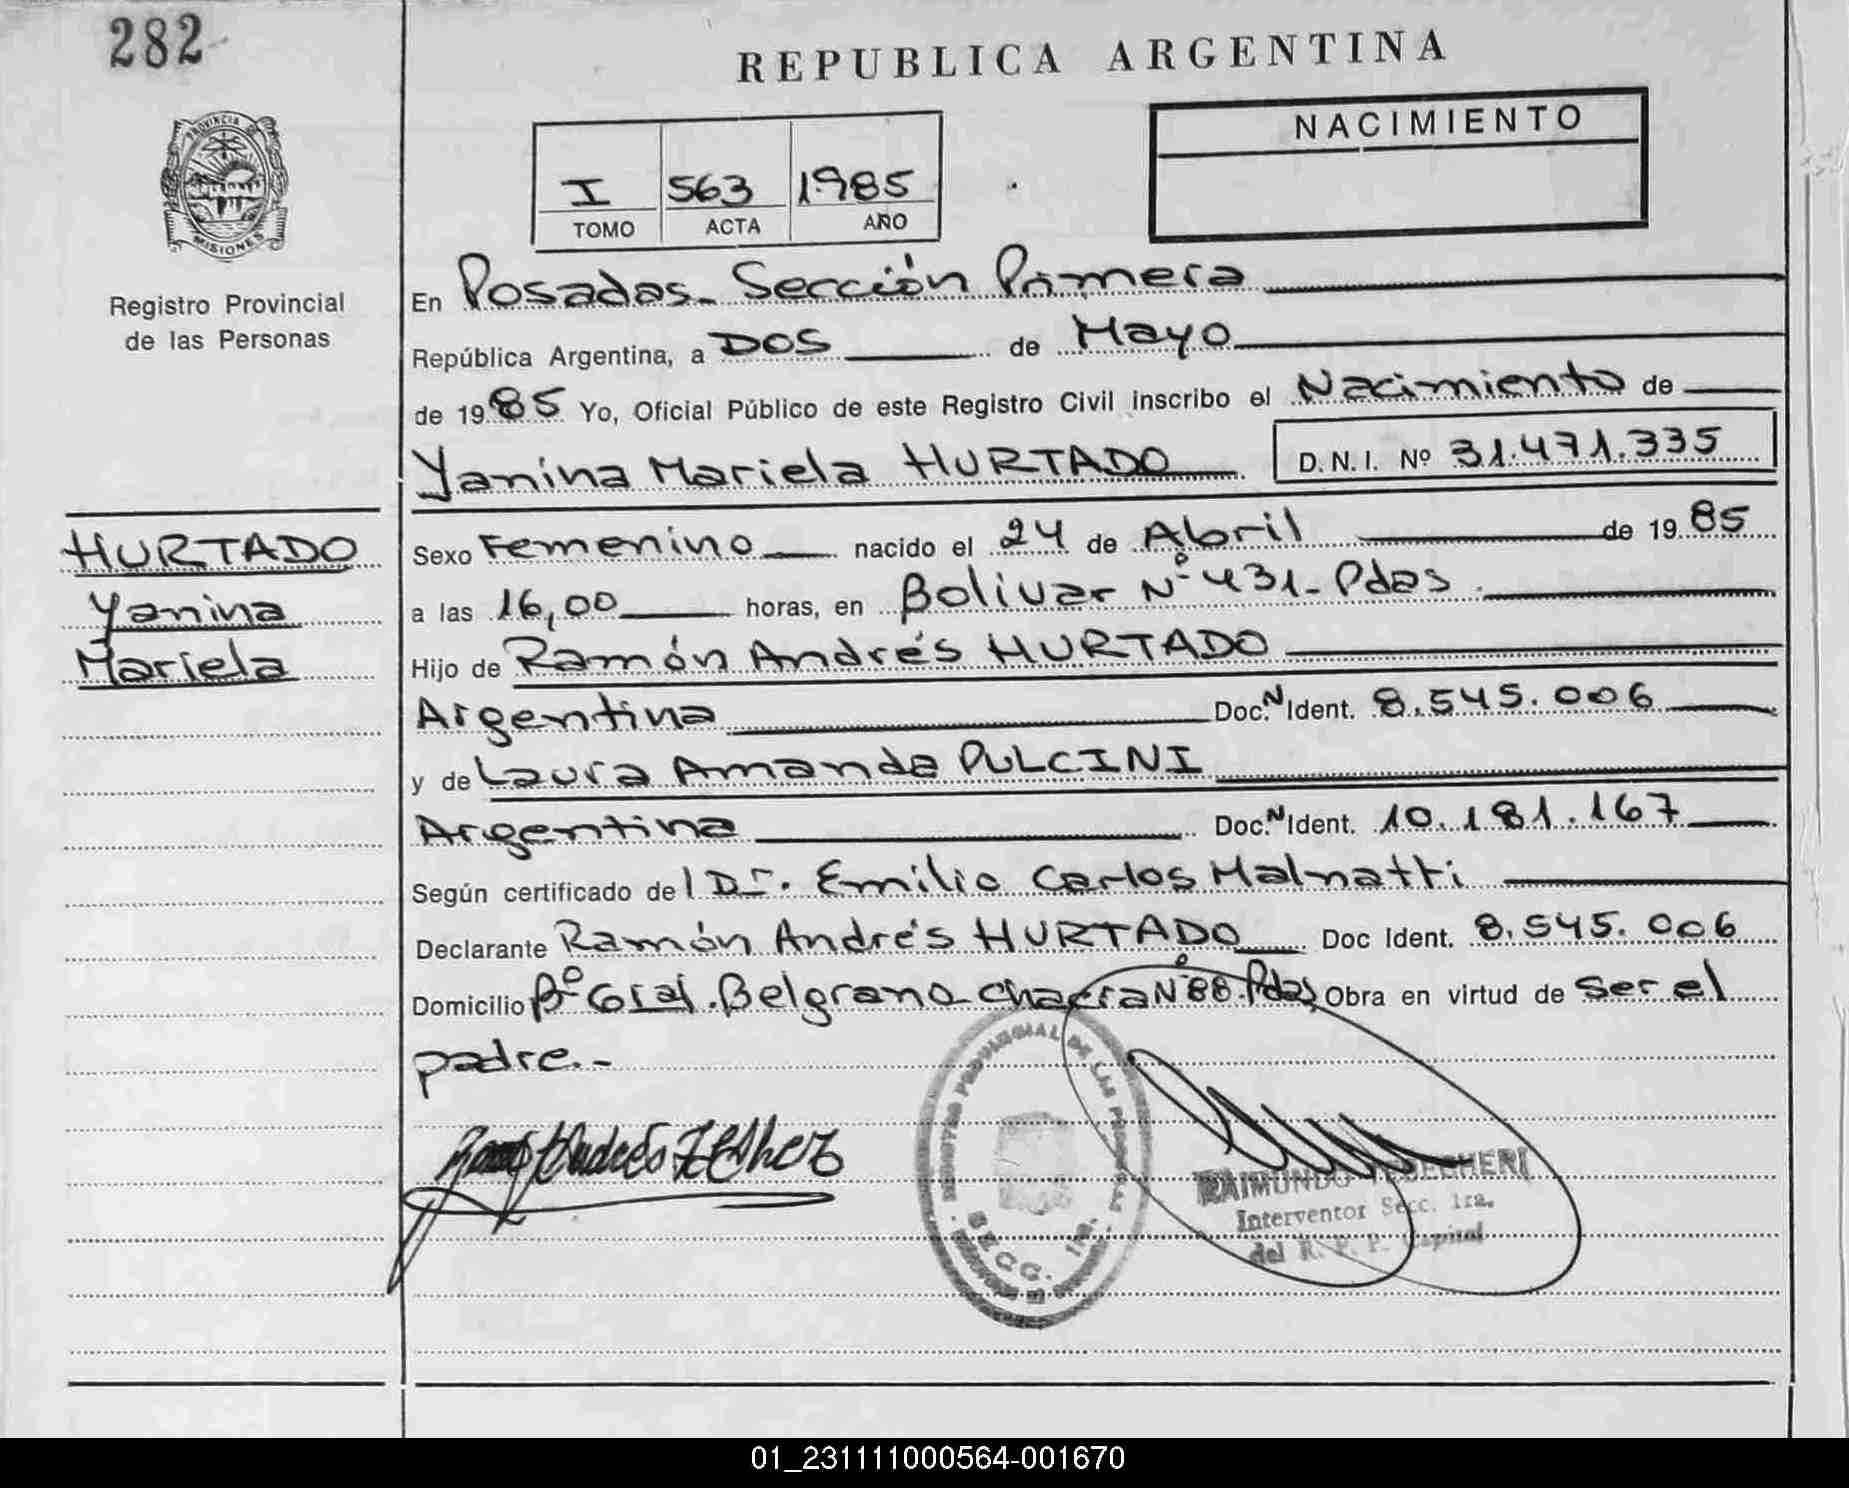 282
REPUBLICA ARGENTINA
PROVINCIA DE
MISIONES
Registro Provincial
de las Personas
I 563 1985
TOMO ACTA AÑO
NACIMIENTO
En Posadas - Sección Primera
República Argentina, a DOS de Mayo
de 1985 Yo, Oficial Público de este Registro Civil inscribo el Nacimiento de
Yanina Mariela HURTADO D.N.I. Nº 31.471.335
HURTADO
Yanina
Mariela
Sexo Femenino nacido el 24 de Abril de 1985
a las 16,00 horas, en Bolivar Nº 431 - Pdas
Hijo de Ramón Andrés HURTADO
Argentina Doc. N Ident. 8.545.006
y de Laura Amanda PULCINI
Argentina Doc. N Ident. 10.181.167
Según certificado del Dr. Emilio Carlos Malnatti
Declarante Ramón Andrés HURTADO Doc Ident. 8.545.006
Domicilio Bº Gral. Belgrano chacra Nº 88. Pdas Obra en virtud de ser el
padre.-
REGISTRO PROVINCIAL DE LAS PERSONAS
SECC. 1ra.
RAIMUNDO
Interventor Secc. 1ra.
del R. P. P. Capital
01_231111000564-001670